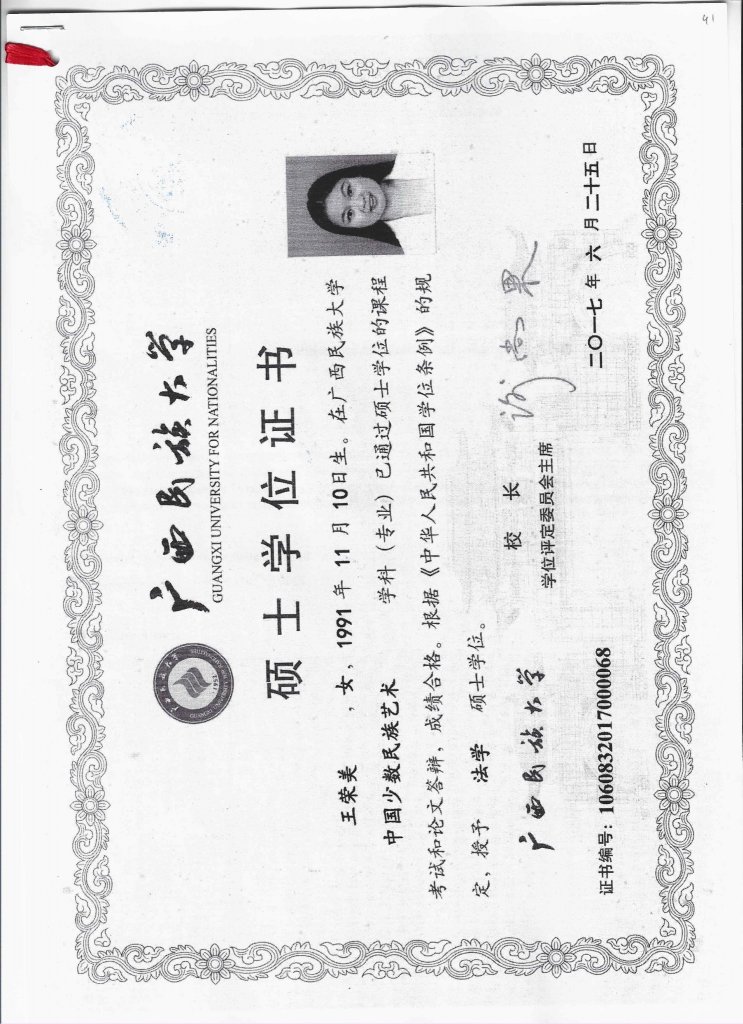 41
广西民族大学
GUANGXI UNIVERSITY FOR NATIONALITIES
硕士学位证书
王荣美 ，女，1991 年 11 月 10日生。在广西民族大学
中国少数民族艺术 学科（专业）已通过硕士学位的课程
考试和论文答辩，成绩合格。根据《中华人民共和国学位条例》的规
定，授予 法学 硕士学位。
广西民族大学
校 长
学位评定委员会主席
证书编号：1060832017000068
二〇一七 年 六 月 二十五日